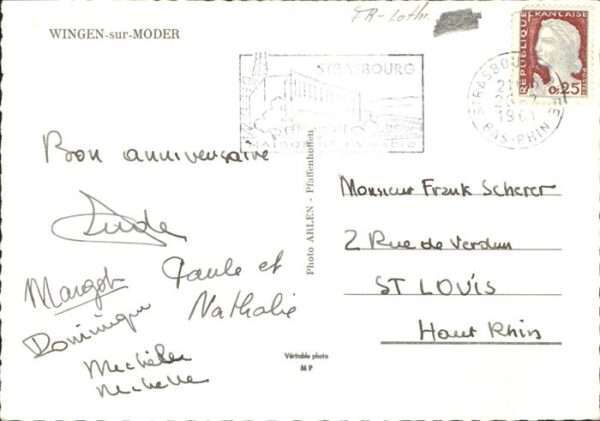 FR-Loth.
WINGEN-sur-MODER
RÉPUBLIQUE FRANÇAISE
0,25
STRASBOURG
STRASBOURG
BAS-RHIN
Bon anniversaire
Margot
Paule et
Nathalie
Dominique
Michèle
Michelle
Photo ARLEN - Pfaffenhoffen
Véritable photo
M P
Monsieur Frank Scherer
2 Rue de Verdun
ST LOUIS
Haut Rhin